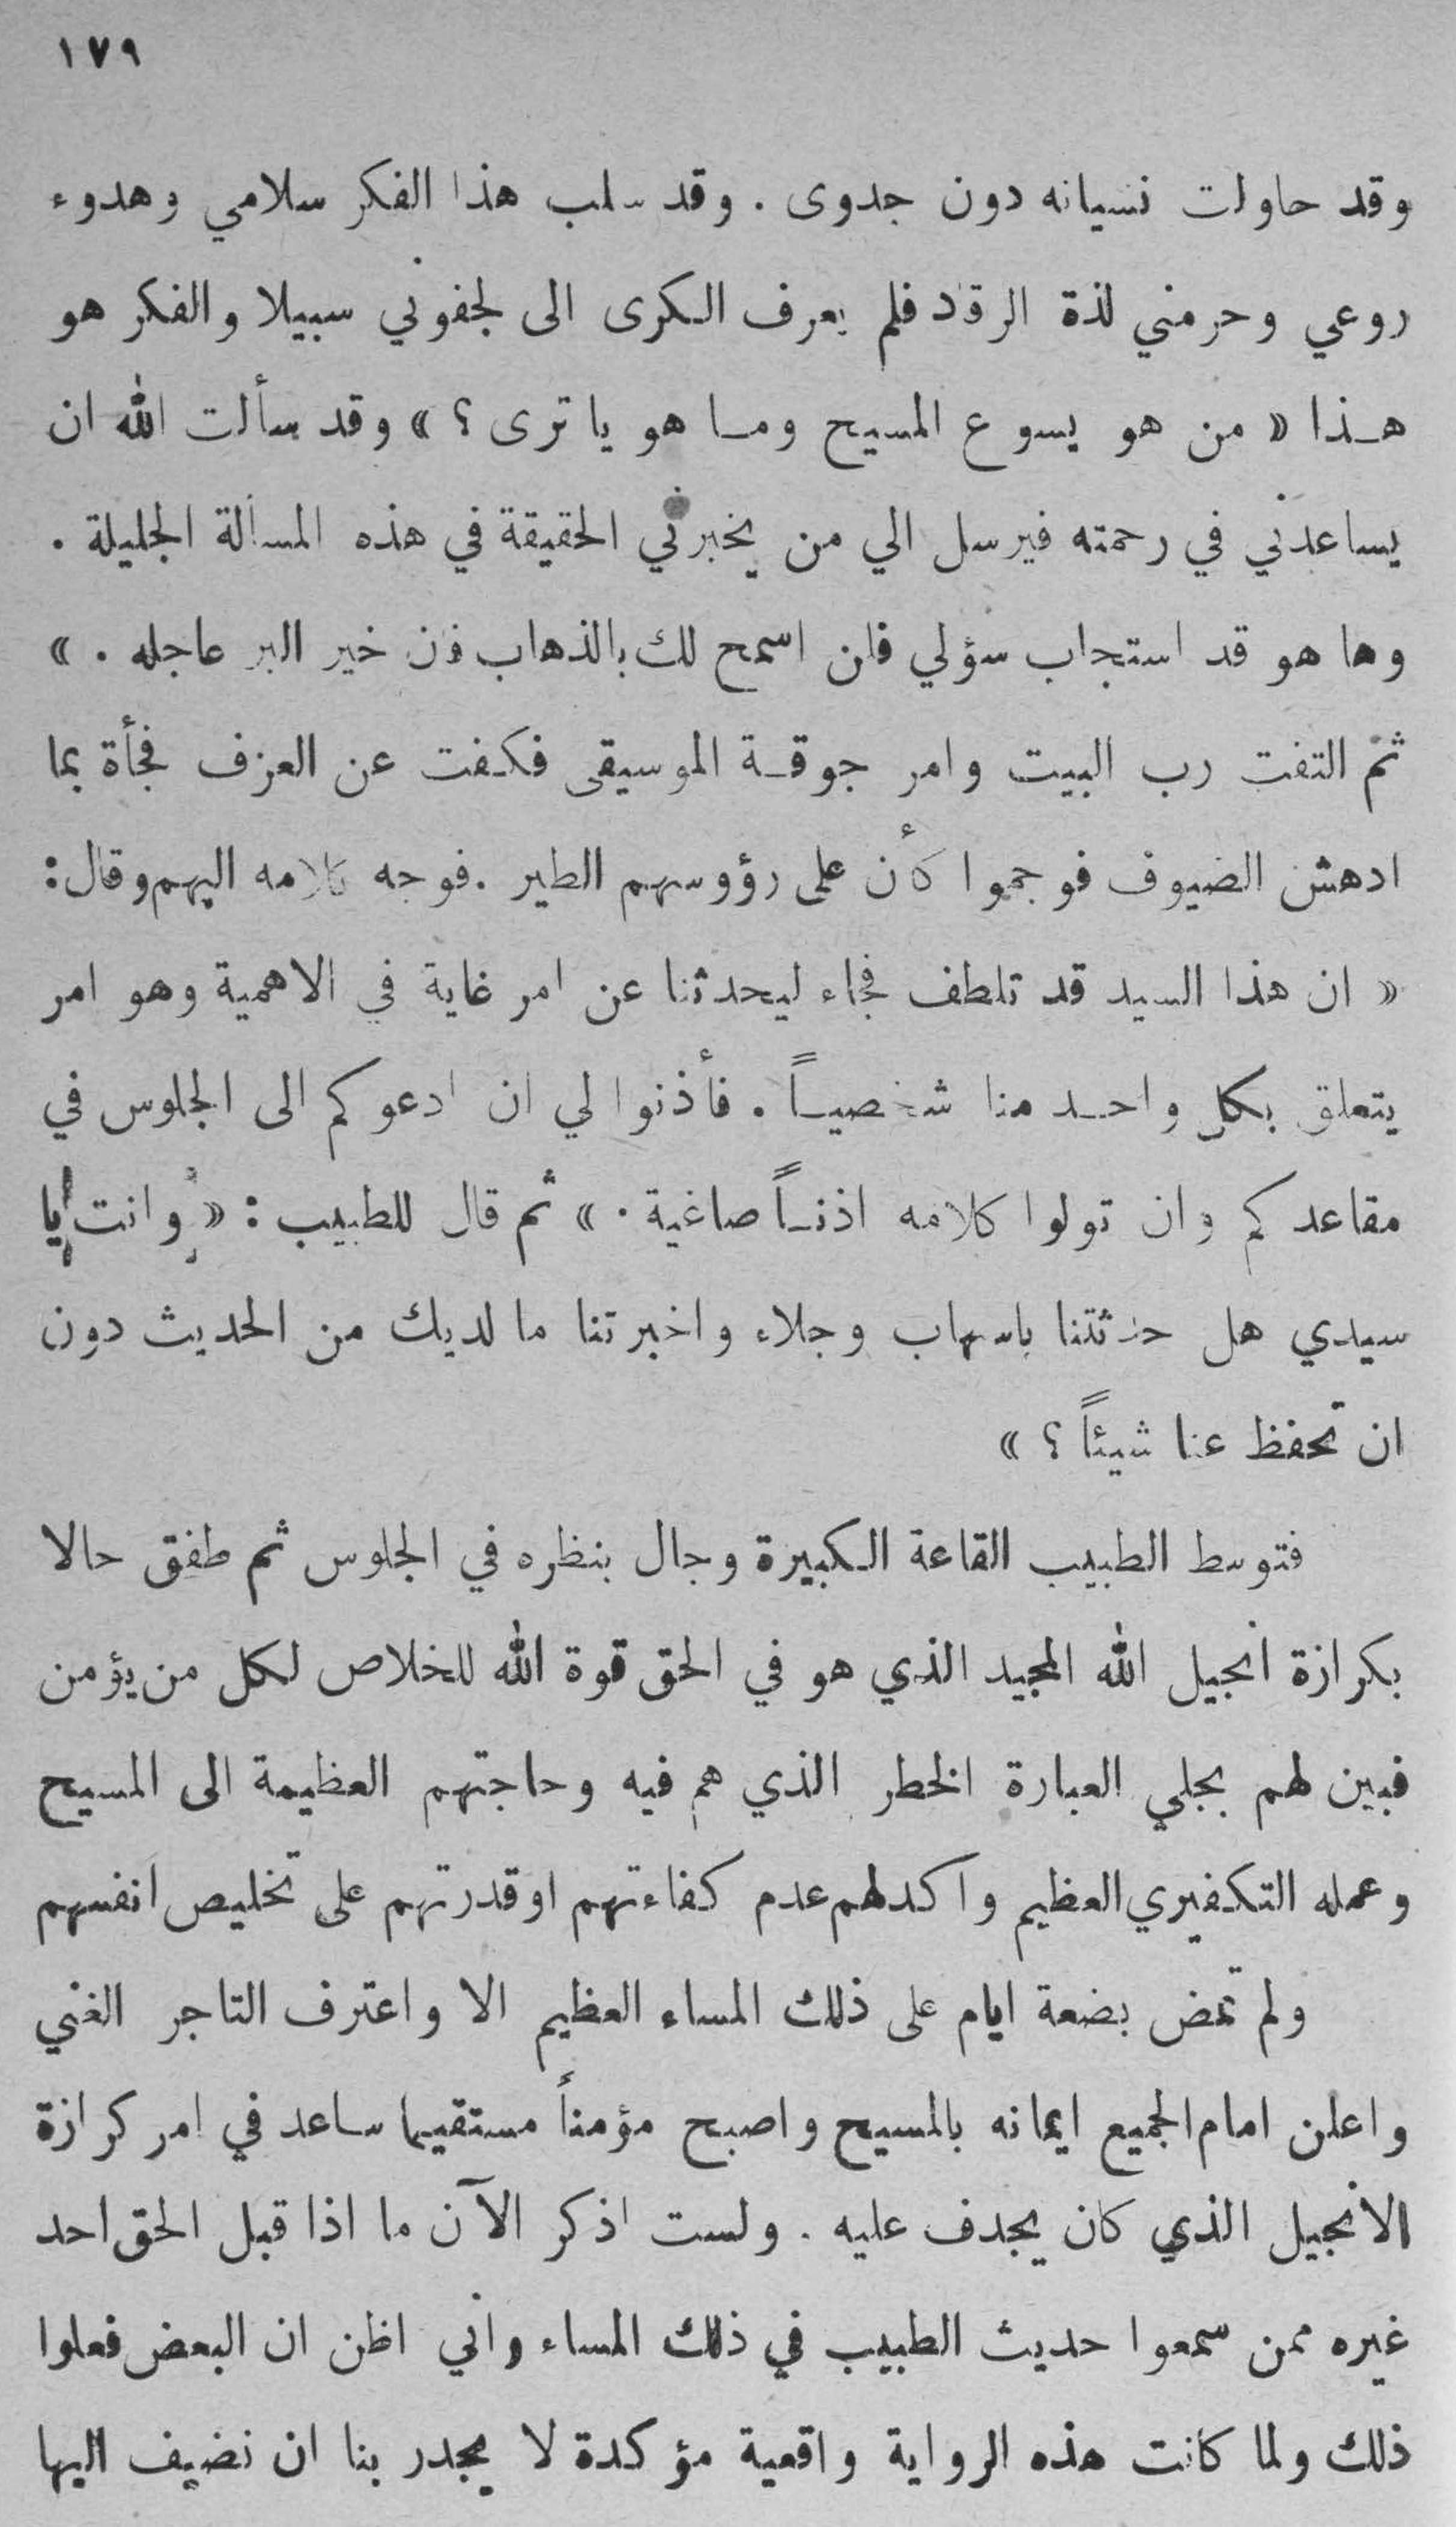 ١٧٩
وقد حاولت نسيانه دون جدوى . وقد سلب هذا الفكر سلامي وهدوء
روعي وحرمني لذة الرقاد فلم يعرف الكرى الى لجفوني سبيلا والفكر هو
هذا « من هو يسوع المسيح وما هو يا ترى ؟ » وقد سألت الله ان
يساعدني في رحمته فيرسل الي من يخبرني الحقيقة في هذه المسألة الجليلة .
وها هو قد استجاب سؤلي فلن اسمح لك بالذهاب فان خير البر عاجله . »
ثم التفت رب البيت وامر جوقة الموسيقى فكفت عن العزف فجأة بما
ادهش الضيوف فوجموا كأن على رؤوسهم الطير . فوجه كلامه اليهم وقال :
« ان هذا السيد قد تلطف فجاء ليحدثنا عن امر غاية في الاهمية وهو امر
يتعلق بكل واحد منا شخصياً . فأذنوا لي ان ادعوكم الى الجلوس في
مقاعدكم وان تولوا كلامه اذناً صاغية . » ثم قال للطبيب : « وانت يا
سيدي هل حدثتنا باسهاب وجلاء واخبرتنا ما لديك من الحديث دون
ان تحفظ عنا شيئاً ؟ »
فتوسط الطبيب القاعة الكبيرة وجال بنظره في الجلوس ثم طفق حالا
بكرازة انجيل الله المجيد الذي هو في الحق قوة الله للخلاص لكل من يؤمن
فبين لهم بجلي العبارة الخطر الذي هم فيه وحاجتهم العظيمة الى المسيح
وعمله التكفيري العظيم واكد لهم عدم كفاءتهم او قدرتهم على تخليص انفسهم
ولم تمض بضعة ايام على ذلك المساء العظيم الا واعترف التاجر الغني
واعلن امام الجميع ايمانه بالمسيح واصبح مؤمناً مستقيما ساعد في امر كرازة
الانجيل الذي كان يجدف عليه . ولست اذكر الآن ما اذا قبل الحق احد
غيره ممن سمعوا حديث الطبيب في ذلك المساء واني اظن ان البعض فعلوا
ذلك ولما كانت هذه الرواية واقعية مؤكدة لا يجدر بنا ان نضيف اليها